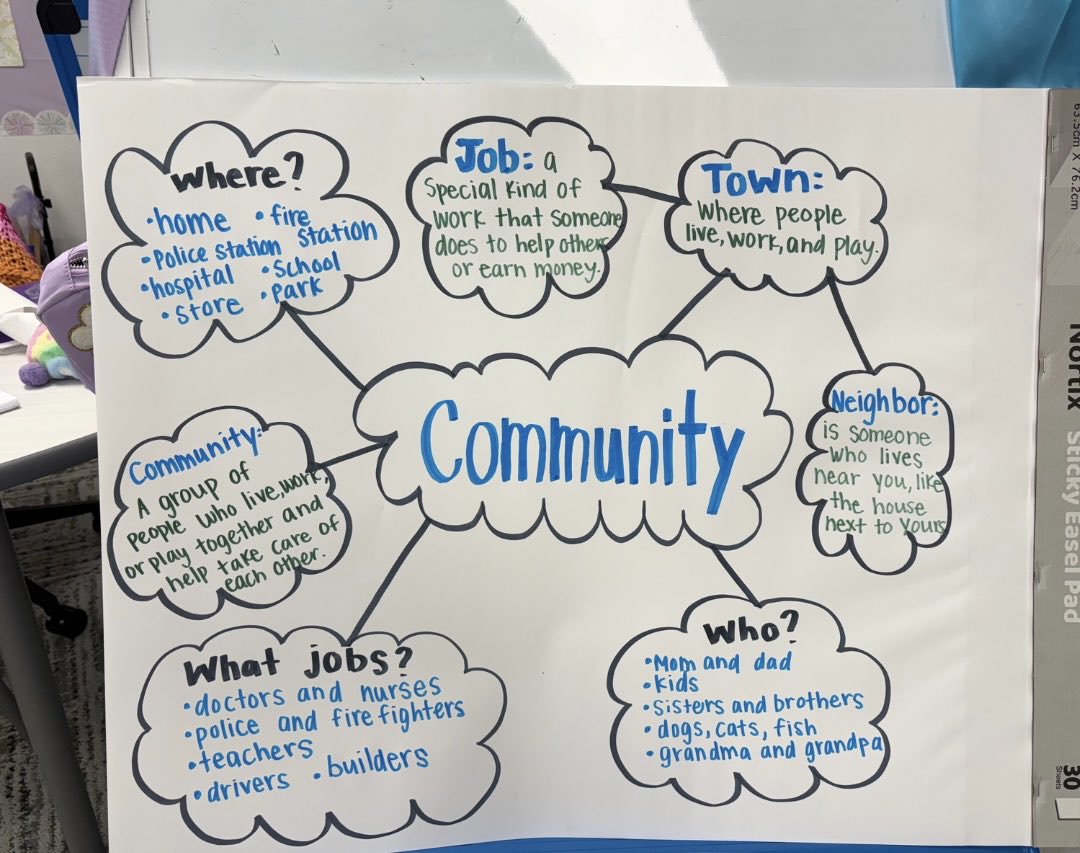 where?
•home •fire
•Police Station Station
•hospital •School
•Store •Park
Job: a
Special kind of
work that someone
does to help others
or earn money.
Town:
Where people
live, work, and play.
Community
Neighbor:
is someone
who lives
near you, like
the house
next to yours
Community:
A group of
people who live, work,
or play together and
help take care of
each other.
What jobs?
•doctors and nurses
•police and fire fighters
•teachers
•drivers •builders
Who?
•Mom and dad
•kids
•Sisters and brothers
•dogs, cats, fish
•grandma and grandpa
63.5cm X 76.2cm
Nortix Sticky Easel Pad
30
Sheets